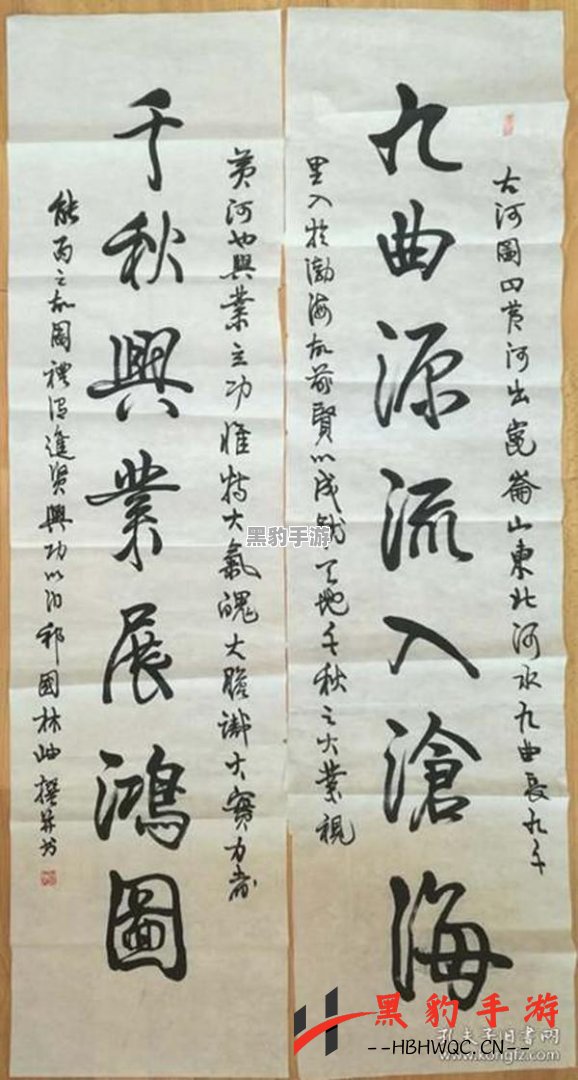 九曲源流入滄海
古河圖四黄河出崑崙山東北河水九曲長九千
里入於渤海故前賢以成就天地千秋之大業視
千秋興業展鴻圖
黄河也興業立功惟特大氣魄大膽識大實力者
能為之故圖禮賢進賢興功以治邦國林岫撰并書
黑豹手游
黑豹手游
--HBHWQC.CN--
孔夫子旧书网
www.kongfz.com